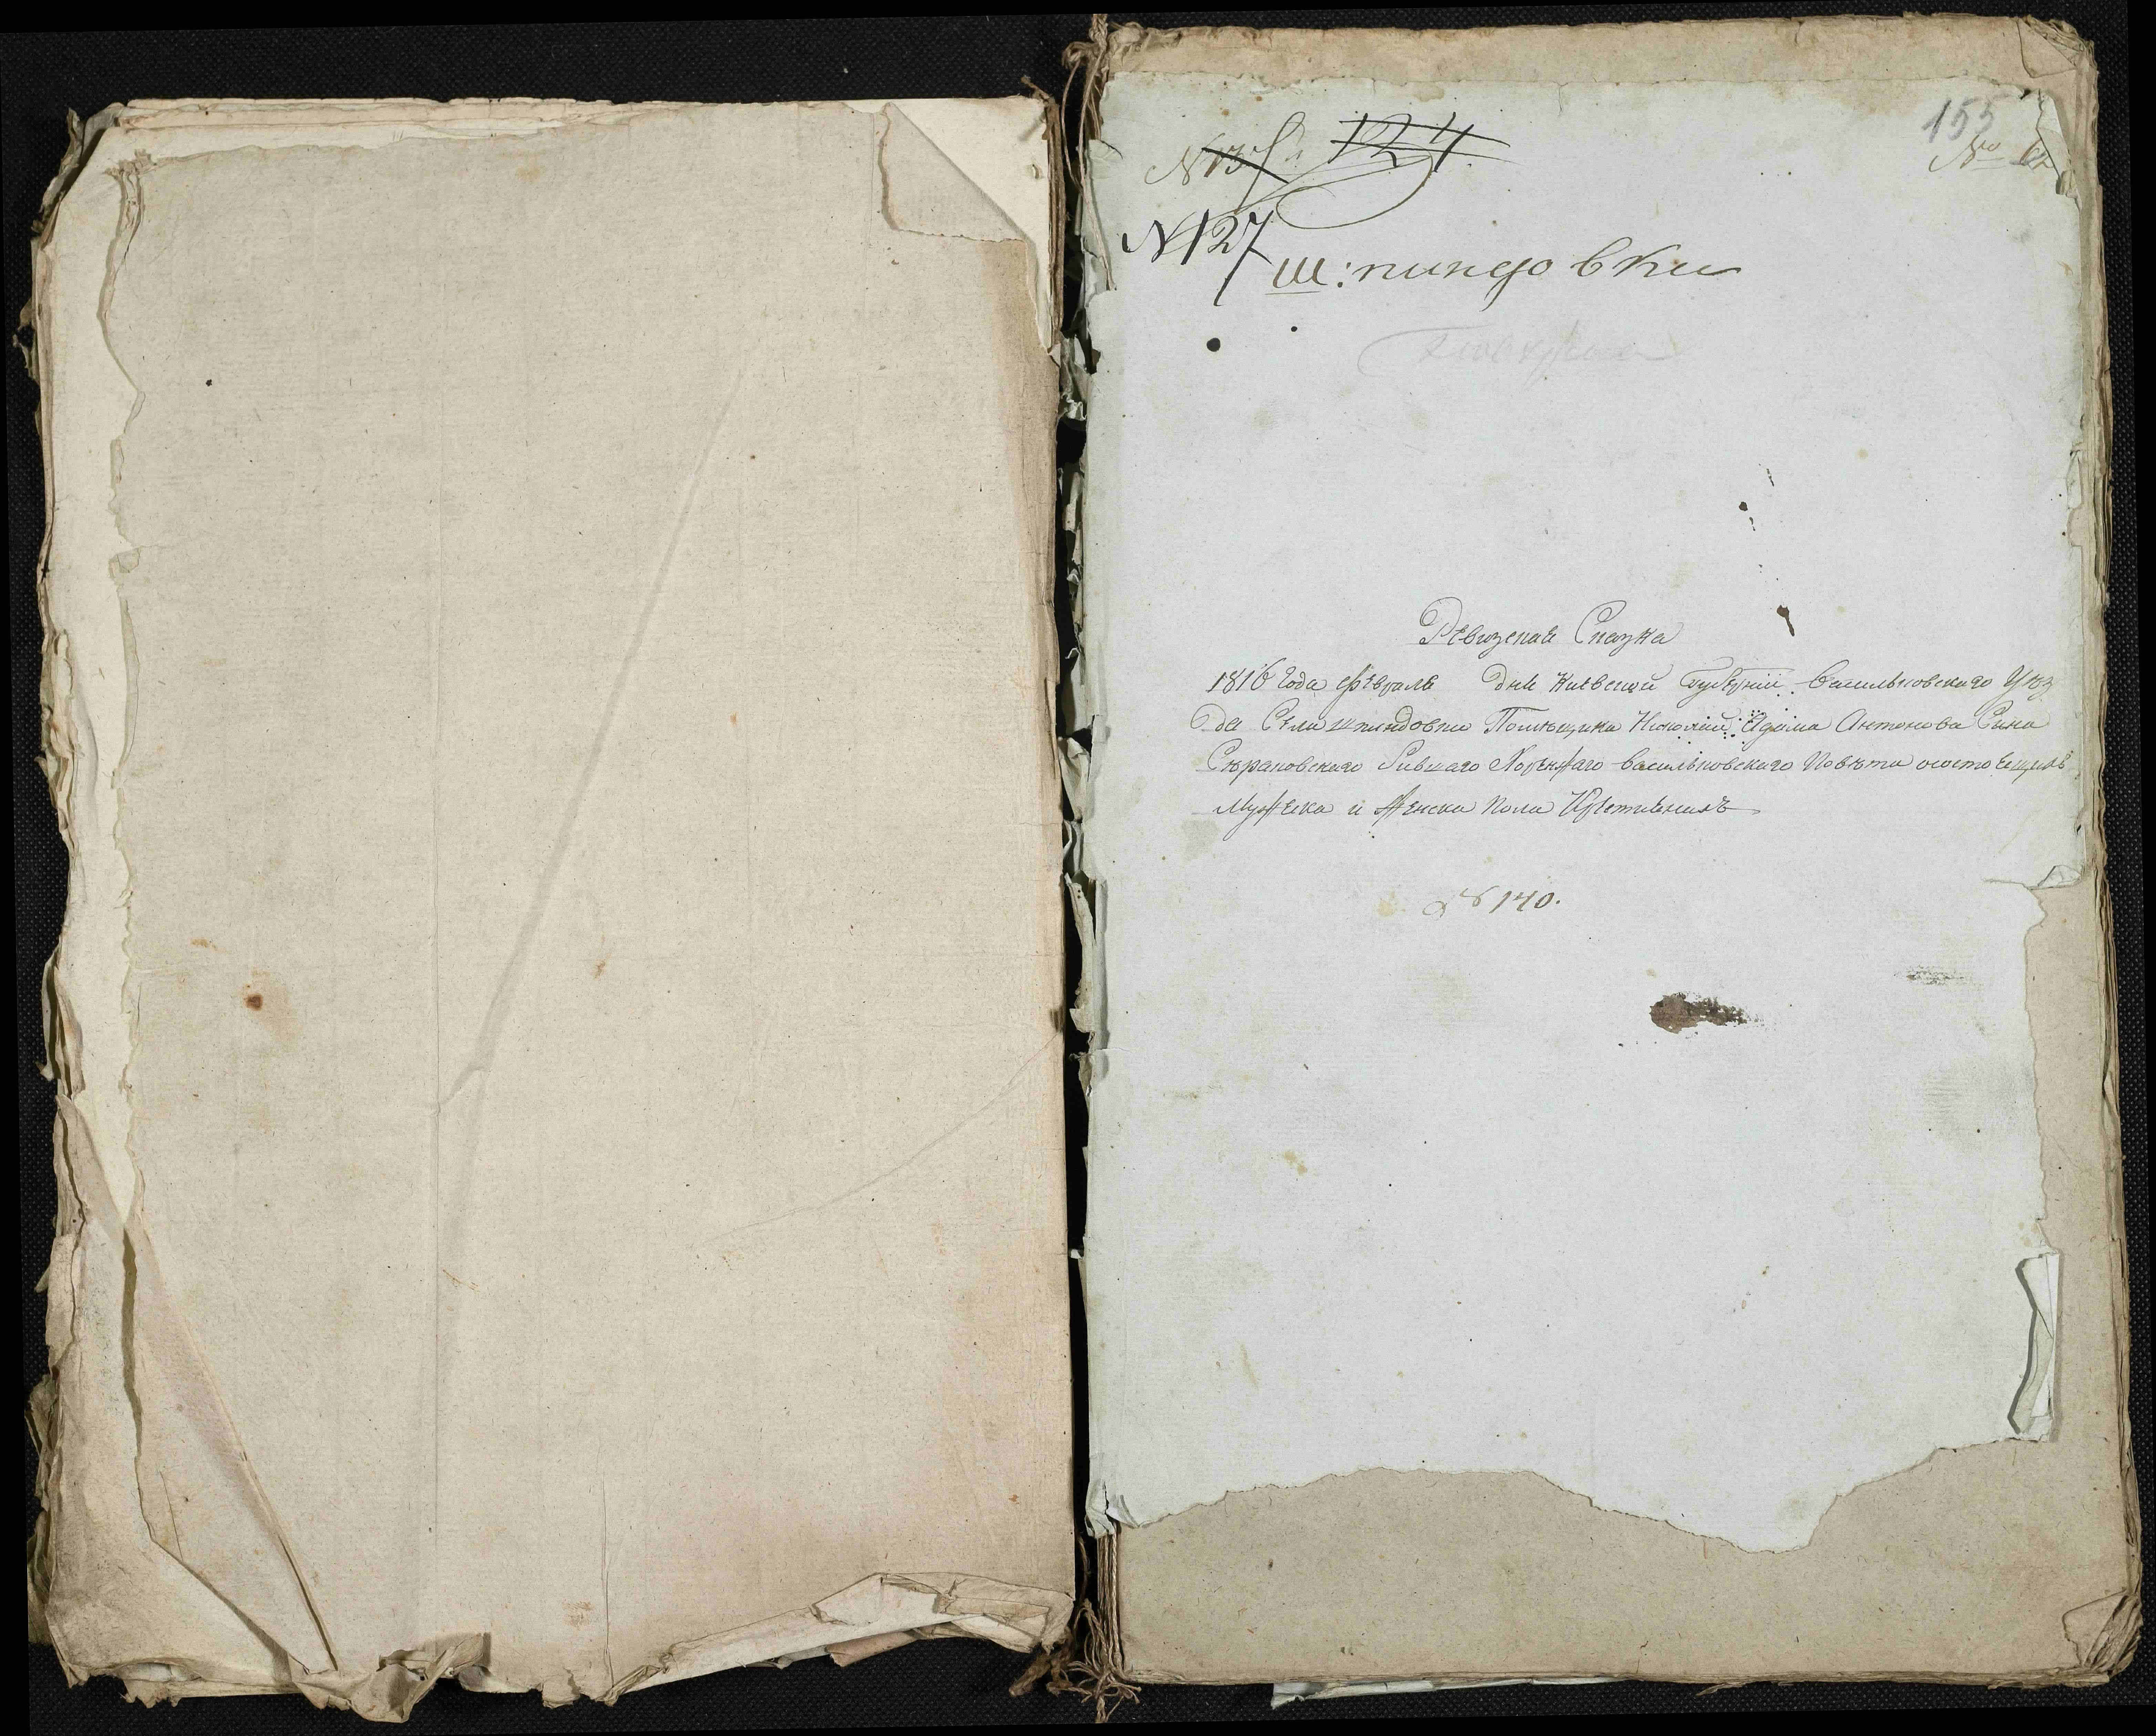 155
124
№ 62
N 127
Ш: пиндовки
Ревизская Сказка
1816 Года февраля дня Киевской Губернии Васильковского Уѣз
да Села шпиндовки Помѣщика Николая Адама Антонова Сина
Сѣраковского Бившаго Хоружаго Васильковского Повѣта о состоещихъ
Мужеска и Женска Пола Крестьянихъ
№ 140.